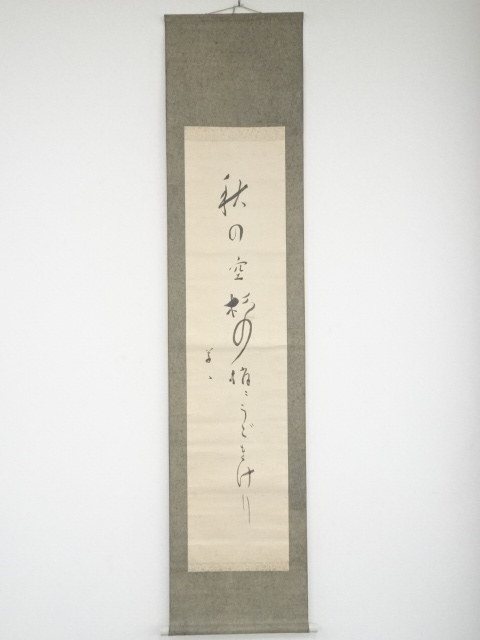 秋の空杉の梢にうごきけり